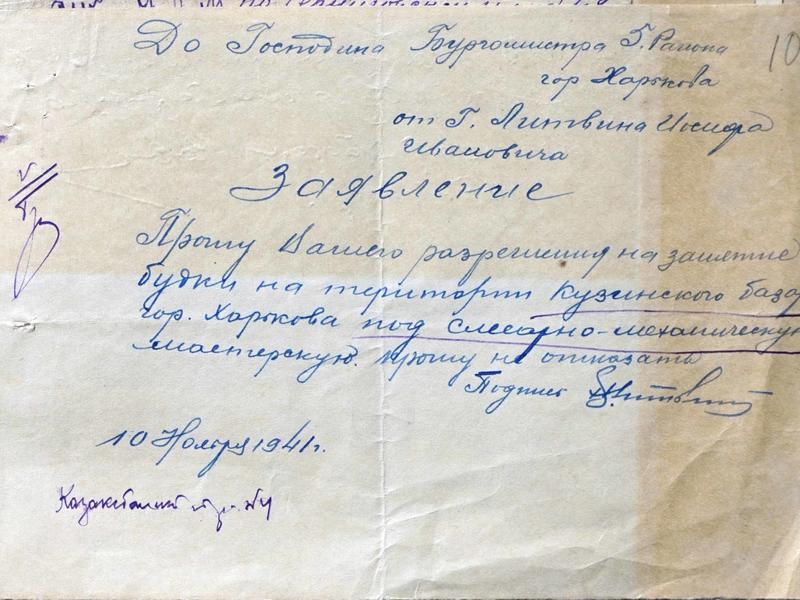 10
До Господина Бургомистра 5. Района
гор Харькова
от Г. Литвина Иосифа
Ивановича
Заявление
Прошу Вашего разрешения на занятие
будки на територии Кузинского базар
гор. Харькова под слесарно-механическую
мастерскую. прошу не отказать
Подпись
10 Ноября 1941г.